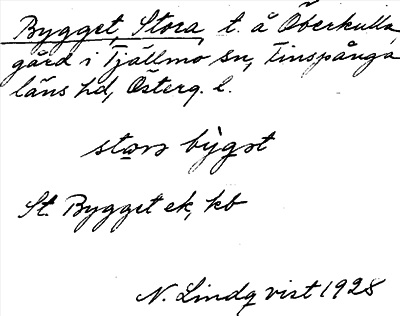 Bygget, Stora, t. å Överkulla
gård i Tjällmo sn, Finspånga
läns hd, Österg. l.
stora bỳgət
St. Bygget ek, kb
N. Lindqvist 1928